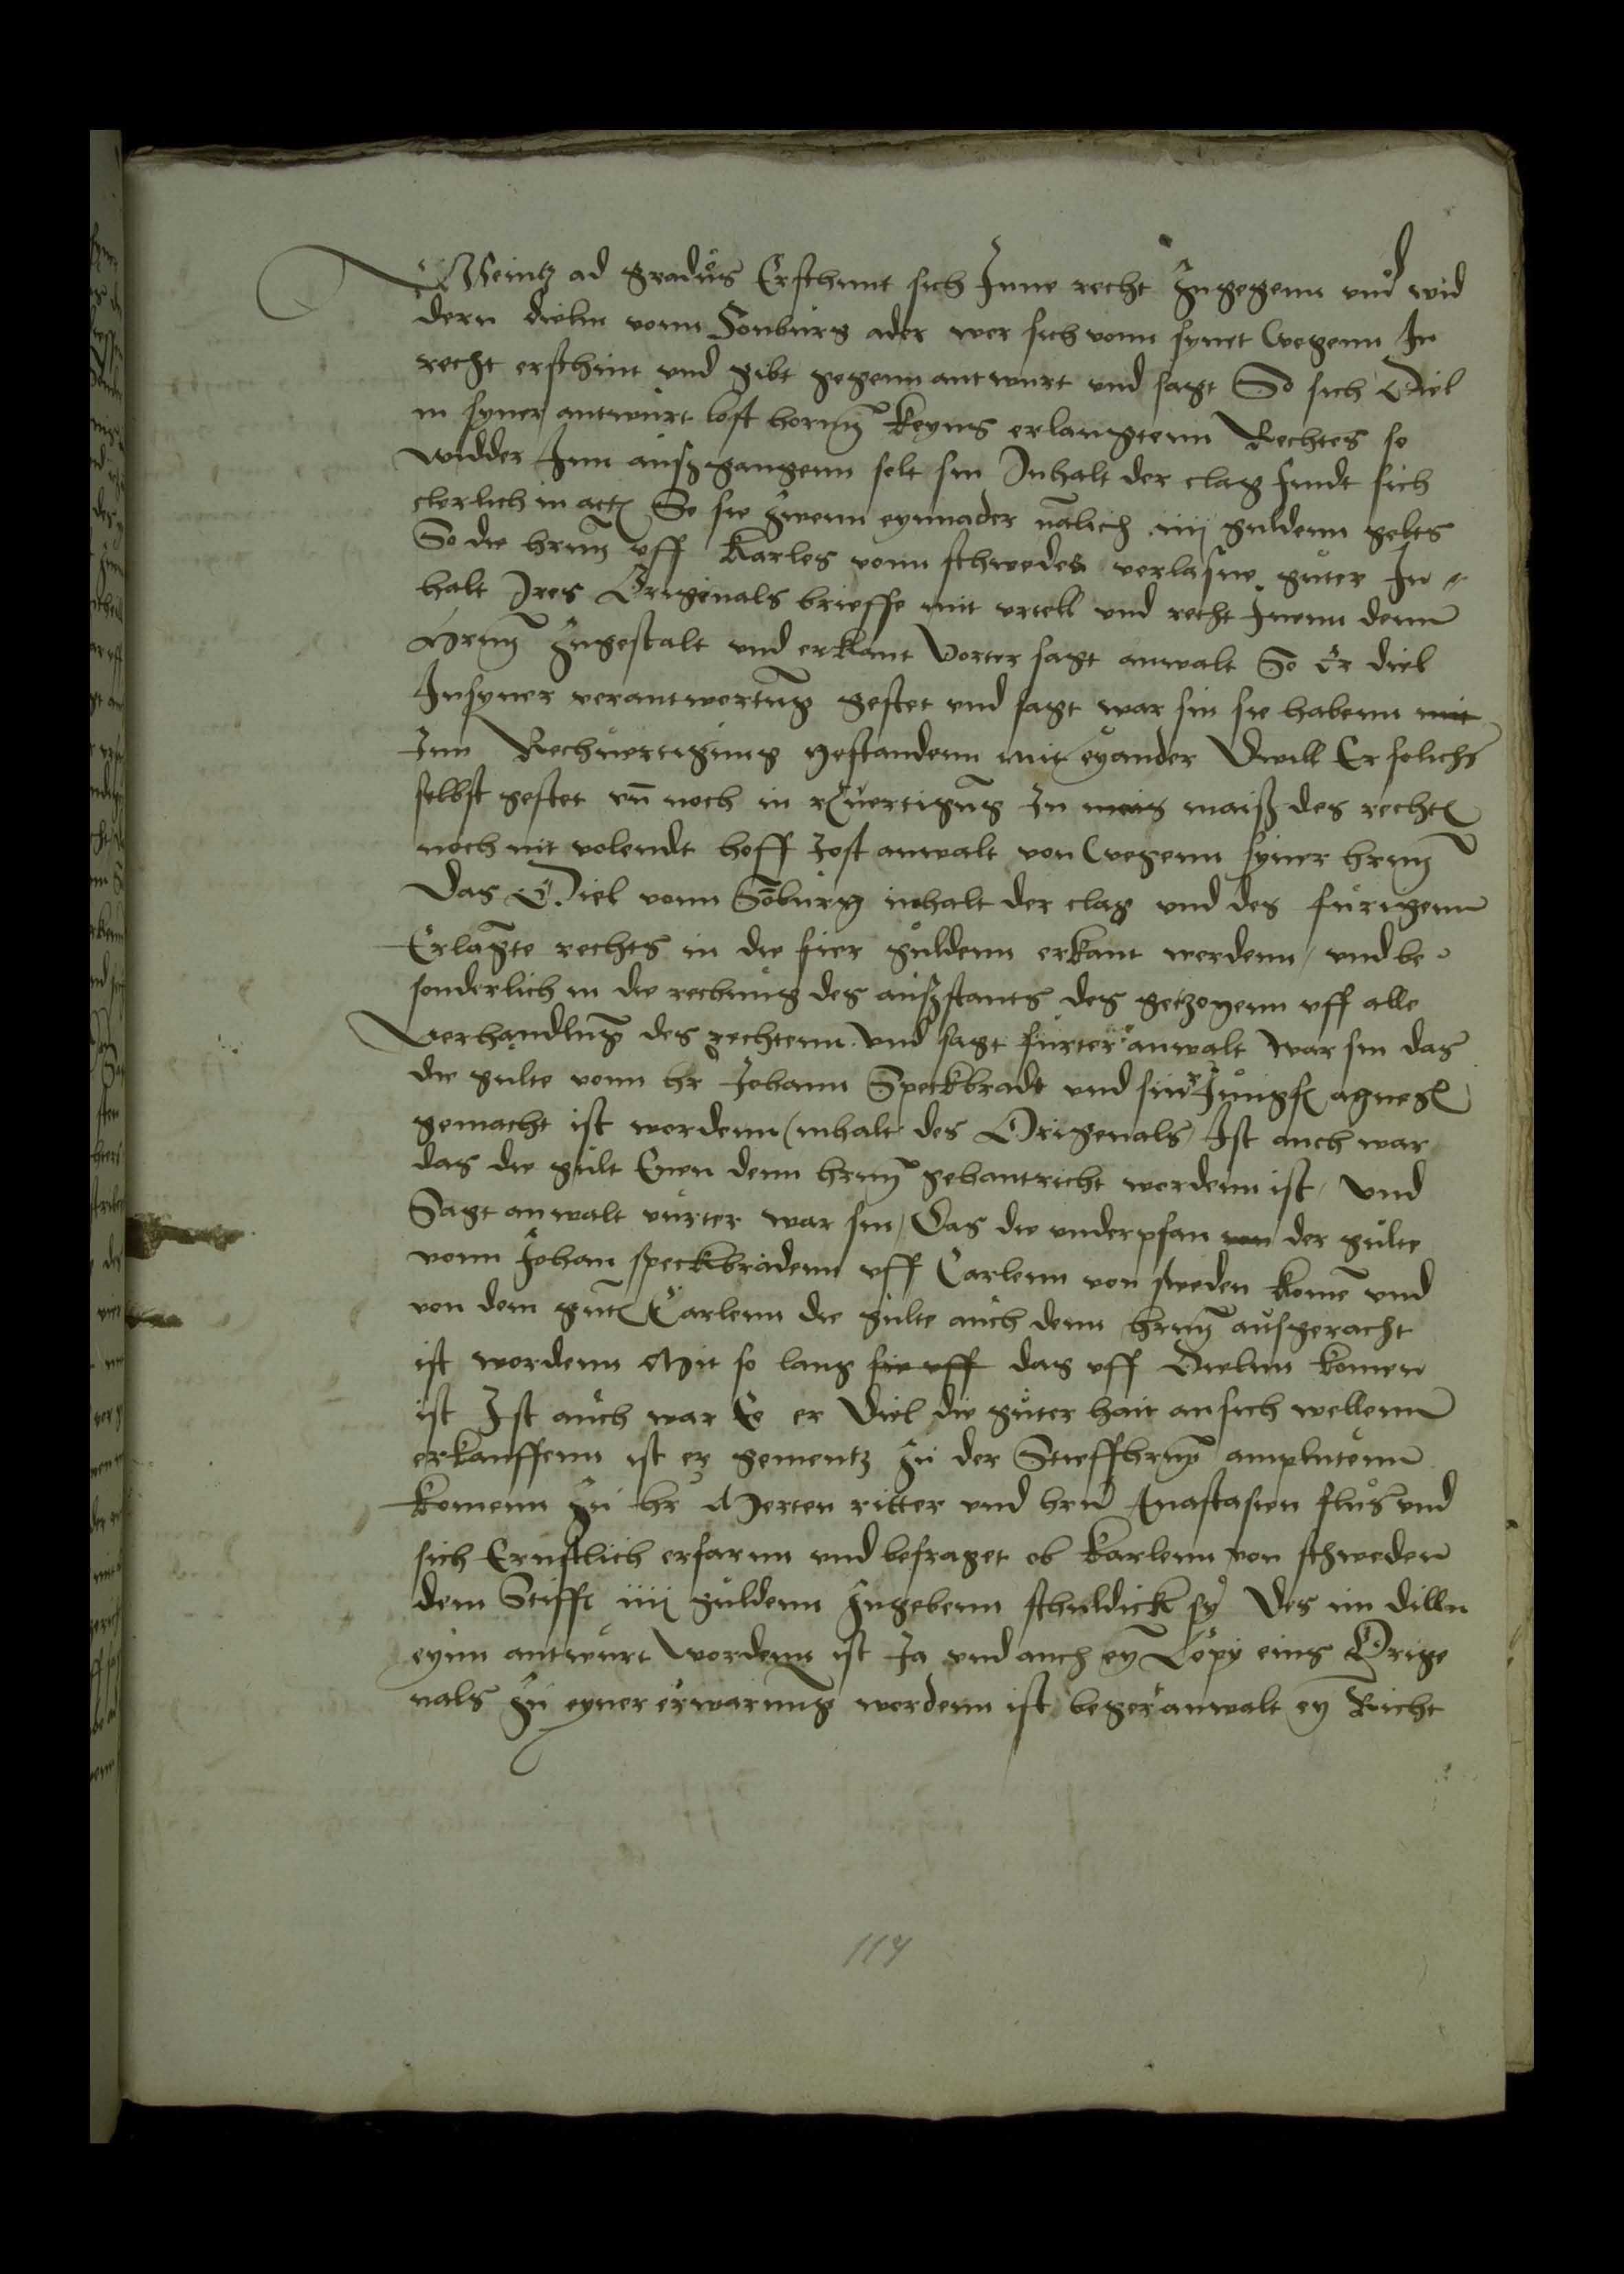 Meintz ad gradus Erschint sich Inne recht Zugegenn und wid
dern dieln vonn Sonburg ader wer sich vonn synet wegenn In
recht erschint und gibt gegenn antwurt und sagt So sich Diel
in syner antwurt lest keyns erlangtenn Rechtes so
widder Inn außgangenn solt sin Inhalt der clag findt sich
clerlich in So sie zwenn eynnader nalich iiii guldenn gelts
So die hrnn uff Karles vonn schweden verlasne guter In
halt Ires Originals brieffe mit urtell und recht Inenn denn
Zugestalt und erklant Vorter sagt anwalt So Er diel
Insyner verantwertung gestet und sagt war sin sie habenn mit
Inn Rechuertigung gestandenn mit eyander Dwill Er solichs
selbst gestet un noch in In maiß des rechten
noch nit volendt hoff Jost anwalt von wegenn syner hrnn
Das Diel vonn Soburg inhalt der clag und des furigenn
Erlagte rechts in die fier guldenn erkant werdenn und be
sonderlich in die rechnug des außstants des getzogenn uff alle
verhandlung des rechtenn und sagt furter anwalt war sin das
die gulte vonn hr Johann Speckbradt und siner Jungfr agnesen
gemacht ist wordenn inhalt des Origenals Ist auch war
das die gult Enen denn hrnn gehantricht wordenn ist und
Sagt anwalt vurter war sin Das die underpfan von der gulte
vonn Johan speckbradenn uff Carlenn von sweden kome und
von dem guten Carlenn die gulte auch denn hrnn ausgeracht
ist wordenn Mit so lang sie uff das uff Dielnn komen
ist Ist auch war Ee er Diel die guter hait an sich wellenn
erkauffenn ist er gementz zu der Stieffhrnn amplutenn
komenn zu hr Merten ritter und hrn Anastasien flus und
sich Ernstlich erfarnn und befraget ob karlenn von schweden
dem Stifft iiii guldenn Zugebenn schuldick sy Des im dilln
eynn antwurt wordenn ist Ja und auch ey Copy eins Orige
nals zu eyner erwarung wordenn ist beger anwalt ey Richt
114